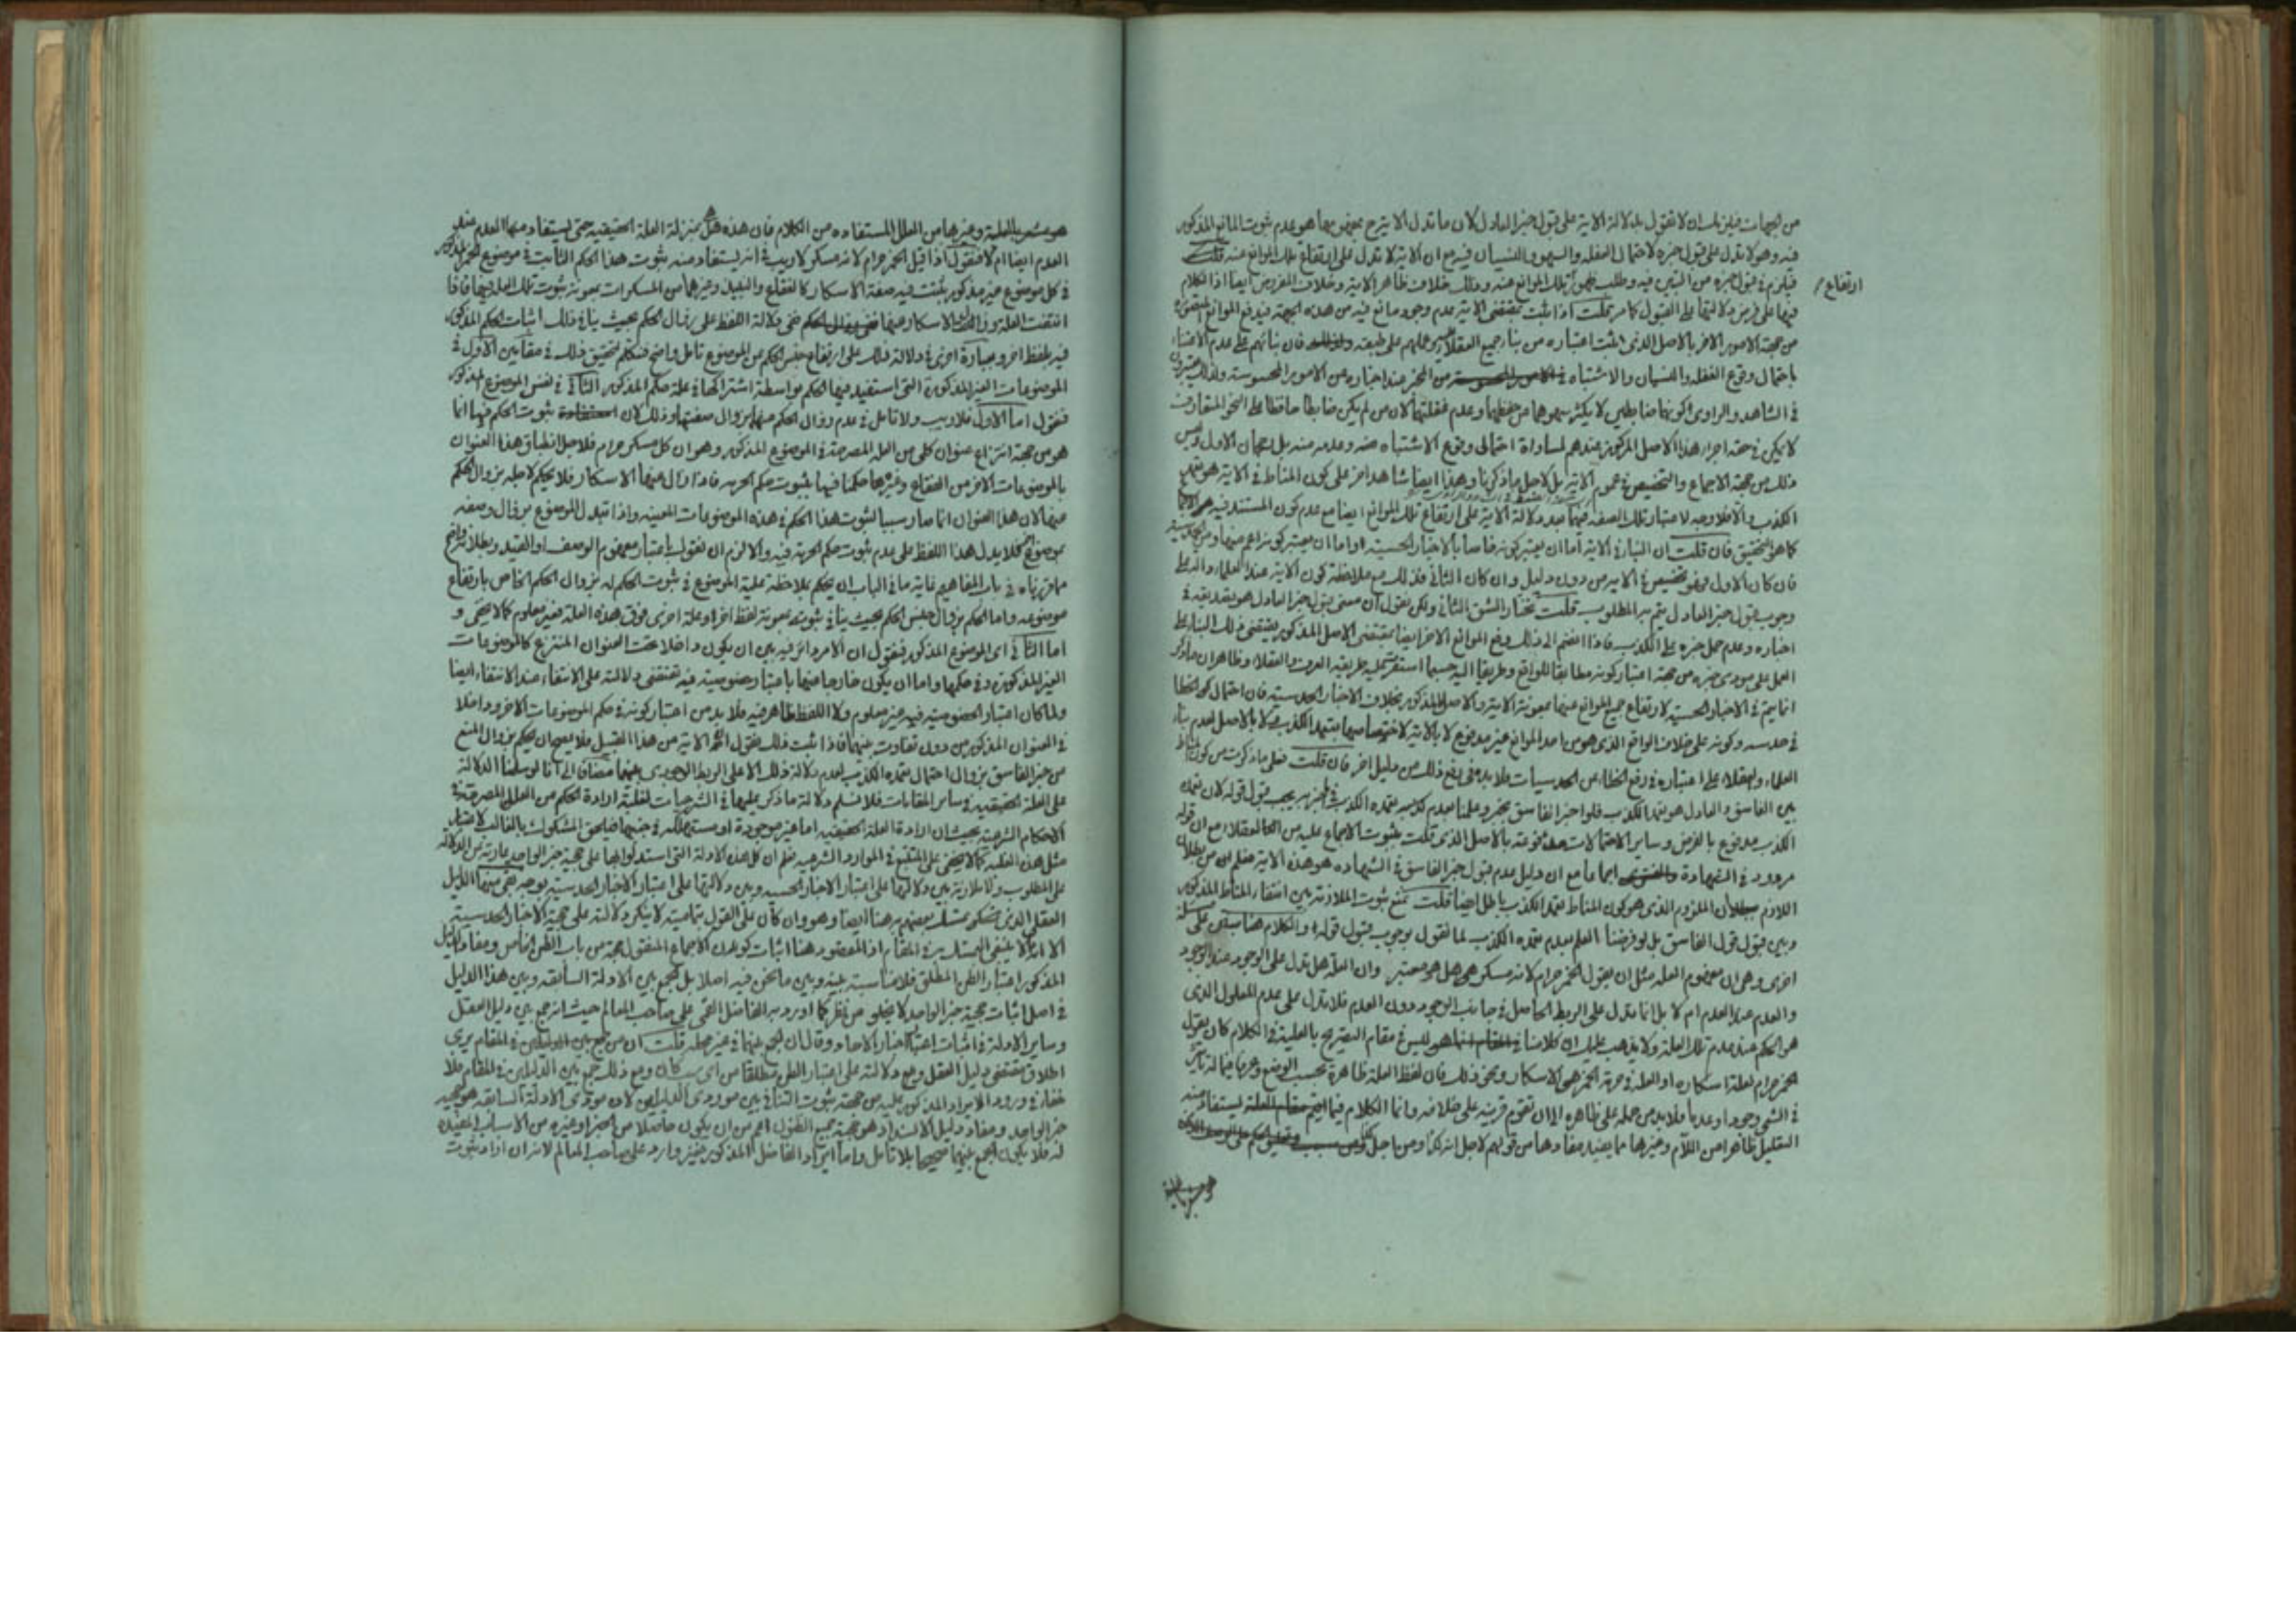 من الجهات فيلزمك ان لا تقول بدلالة الاية على قبول خبر العادل لان ما تدل الاية ح بمفهومها هو عدم ثبوت المانع المذكور
فيه وهو لا يدل على قبول خبره لاحتمال الغفله والسهو والنسيان فيه مع ان الاية لا تدل على ارتفاع تلك الموانع عنه قلت
ارتفاع
فيلزم في قبول خبره من التبين فيه وطلب تلك الموانع عنه وذلك خلاف ظاهر الاية وخلاف المفروض ايضا اذ الكلام
فيها على فرض دلالتها على القبول كما مر قلت اذا ثبت بمقتضى الاية عدم وجود مانع فيه من هذه الجهة فيدفع الموانع
من جهة الامور الاخر بالاصل الذى اثبت اعتباره من بناء جميع العقلاء عملهم على طبقه فان بنائهم على عدم الاعتناء
باحتمال وقوع الغفله والنسيان والاشتباه من المخبر عند اخباره عن الامور المحسوسة ولذلك
في الشاهد والراوى كونهما ضابطين لا يكثر سهوهما عن حفظهما وعدم غفلتهما لان من لم يكن ضابطا حافظا على النحو المتعارف
لا يمكن في حقه اجراء هذا الاصل المركوز عندهم لمساواة احتمالى وقوع الاشتباه منه وعدمه منه بل رجحان الاول وليس
ذلك من جهة الاجماع والتخصيص في عموم الاية بل لاجل ما ذكرنا وهذا ايضا شاهد اخر على كون المناط في الاية هو تعمد
الكذب والا فلا وجه لاعتبار تلك الصفه فيهما بعد دلالة الاية على ارتفاع تلك الموانع ايضا مع عدم كون المستند فيه هو الاجماع
كما هو التحقيق فان قلت ان النبأ في الاية اما ان يعتبر كونه خاصا بالاخبار الحسية او اما ان يعتبر كونه اعم منها ومن الحدسية
فان كان الاول فهو تخصيص في الاية من دون دليل وان كان الثانى فذلك مع ملاحظة كون الاية عند العلماء دالة على
وجوب قبول خبر العادل يتم به المطلوب قلت نختار الشق الثانى ولكن نقول ان معنى قبول خبر العادل هو تصديقه في
اخباره وعدم حمل خبره على الكذب فاذا انضم الى ذلك رفع الموانع الاخر ايضا بمقتضى الاصل المذكور يقتضى ذلك البناء على
العمل على مودى خبره من جهة اعتبار كونه مطابقا للواقع وطريقا اليه حسبما استقر عليه طريقة العرف والعقلاء وظاهر ان ما ذكر
انما يتم في الاخبار الحسية لارتفاع جميع الموانع عنها بمعونة الاية والاصل المذكور بخلاف الاخبار الحدسية فان احتمال الخطا
في حدسه وكونه على خلاف الواقع الذى هو من احد الموانع غير مدفوع لا بالاية لاختصاصها بتعمد الكذب ولا بالاصل لعدم بناء
العلماء والعقلاء على اعتباره في رفع الخطاء عن الحدسيات فلا بد في رفع ذلك من دليل اخر فان قلت فعلى ما ذكرت من كون المناط
بين الفاسق والعادل هو تعمد الكذب فلو اخبر الفاسق بخبر وعلمنا بعدم تعمده الكذب في خبره يجب قبول قوله لان تعمد
الكذب مدفوع بالفرض وساير الاحتمالات مدفوعة بالاصل الذى قلت بثبوت الاجماع عليه من العقلاء مع ان قوله
مردود في الشهادة اجماعا مع ان دليل عدم قبول خبر الفاسق في الشهاده هو هذه الاية فعلم ان من بطلان
اللازم بطلان الملزوم الذى هو كون المناط تعمد الكذب باطل ايضا قلت نمنع ثبوت الملازمة بين انتفاء المناط المذكور
وبين قبول قول الفاسق بل لو فرضنا العلم بعدم تعمده الكذب لما نقول بوجوب قبول قوله والكلام هنا يبتنى على مسئلة
اخرى وهى ان مفهوم العله مثل ان يقول الخمر حرام لانه مسكر هل هو معتبر وان العلة هل تدل على الوجود عند الوجود
والعدم عند العدم ام لا بل انما تدل على الربط الحاصل في جانب الوجود دون العدم فلا تدل على عدم المعلول الذى
هو الحكم عند عدم تلك العلة ولا يذهب عليك ان كلامنا ليس في مقام التصريح بالعلية في الكلام كان يقول
الخمر حرام لعلة اسكاره او العلة في حرمة الخمر هى الاسكار ونحو ذلك فان لفظ العلة ظاهرة بحسب الوضع وغيره فيما له تاثير
في الشى وجودا وعدما فلا بد من حمله على ظاهره الا ان تقوم قرينه على خلافه وانما الكلام فيما يستفاد منه
التعليل ظاهرا من اللام وغيرها مما يفيد مفادها من قولهم لاجل انه كذا ومن اجل
هو مشعر بالعلية
هو مشعر بالعلية وغيرها من العلل المستفاده من الكلام فان هذه هل هى بمنزلة العلة الحقيقيه حتى يستفاد منها العدم عند
العدم ايضا ام لا فنقول اذا قيل الخمر حرام لانه مسكر لا ريب في انه يستفاد منه ثبوت هذا الحكم الثابت في موضوع الخمر المذكور
في كل موضوع غير مذكور يثبت فيه صفة الاسكار كالفقاع والنبيذ وغيرهما من المسكرات بمعونة ثبوت تلك العلة فيها فاذا
انتفت العلة وزالت الاسكار عنها ففى دلالة اللفظ على زوال الحكم بحيث ينافى ذلك اثبات الحكم المذكور
فيه بلفظ اخر وعبارة اخرى في دلالة ذلك على ارتفاع جنس الحكم عن الموضوع تامل واضح فنتكلم لتحقيق ذلك في مقامين الاول في
الموضوعات الغير المذكورة التى استفيد فيها الحكم بواسطة اشتراكها في علة حكم المذكور الثانى في نفس الموضوع المذكور
فنقول اما الاول فلا ريب ولا تامل في عدم زوال الحكم عنها بزوال صفتها وذلك لان ثبوت الحكم فيها انما
هو من جهة انتزاع عنوان كلى من العلة المصرحة في الموضوع المذكور وهو ان كل مسكر حرام فلاجل انطباق هذا العنوان
بالموضوعات الاخر من الفقاع وغيرها حكمنا فيها بثبوت حكم الحرمة فاذا زال عنها الاسكار فلا يحكم لاجله بزوال الحكم
عنها لان هذا العنوان انما صار سببا لثبوت هذا الحكم في هذه الموضوعات المعينه واذا تبدل الموضوع بزوال وصفه
بموضوع اخر فلا يدل هذا اللفظ على عدم ثبوت حكم الحرمة فيه والا لزم ان نقول باعتبار مفهوم الوصف او القيد وبطلانه واضح
مما قررناه في باب المفاهيم غاية ما في الباب ان يحكم بملاحظة علية الموضوع في ثبوت الحكم له بزوال الحكم الخاص بارتفاع
موضوعه واما الحكم بزوال جنس الحكم بحيث ينافى ثبوته بمعونة لفظ اخر او علة اخرى فوق هذه العلة فغير معلوم كما لا يخفى و
اما الثانى اى الموضوع المذكور فنقول ان الامر دائر فيه بين ان يكون داخلا تحت العنوان المنتزع كالموضوعات
الغير المذكورة وفى حكمها واما ان يكون خارجا عنها باعتبار خصوصية فيه تقتضى دلالته على الانتفاء عند الانتفاء ايضا
ولما كان اعتبار الخصوصية فيه غير معلوم ولا اللفظ ظاهر فيه فلا بد من اعتبار كونه في حكم الموضوعات الاخر وداخلا
في العنوان المذكور من دون تفاوت بينهما فاذا ثبت ذلك فنقول ان الاية من هذا القبيل فلا يصح ان يحكم بزوال المنع
من خبر الفاسق بزوال احتمال تعمده الكذب لعدم دلالة ذلك الا على الربط الوجودى بينهما مضافا الى انا لو سلمنا الدلالة
على العلة الحقيقيه في ساير المقامات فلا نسلم دلالة ما ذكر عليها في الشرعيات لغلبة ارادة الحكم من العلل المصرحة في
الاحكام الشرعية بحيث ان ارادة العلة الحقيقيه اما غير موجودة او مستهلكة في جنبها فيلحق المشكوك بالغالب لاعتبار
مثل هذه الغلبه كما لا يخفى على المتتبع في الموارد الشرعيه فعلم ان كل هذه الادلة التى استدلوا بها على حجية خبر الواحد عارية عن الدلالة
على المطلوب ولا ملازمة بين دلالتها على اعتبار الاخبار الحسيه وبين دلالتها على اعتبار الاخبار الحدسية بوجه بقى منها الدليل
العقلى الذى تمسك بعضهم به هنا ايضا وهو وان كان على القول بتماميته لا ينكر دلالته على حجية الاخبار الحدسية
الا انه لا ينبغى التمسك به في المقام اذ المقصود هنا اثبات كون الاجماع المنقول حجة من باب الظن الخاص ومفاد الدليل
المذكور اعتبار الظن المطلق فلا مناسبة بينه وبين ما نحن فيه اصلا بل الجمع بين الادلة السابقه وبين هذا الدليل
في اصل اثبات حجية خبر الواحد لا يخلو عن نظر كما اورد به الفاضل القمى على صاحب المعالم حيث انه جمع بين دليل العقل
وساير الادلة في اثبات اعتبار اخبار الاحاد وقال ان الجمع بينهما في غير محله قلت ان من جمع بين الدليلين في المقام يرى
اطلاق مقتضى دليل العقل ومع دلالته على اعتبار الظن مطلقا من اى سبب كان ومع ذلك جمع بين الدليلين في المقام فلا
خفاء في ورود الايراد المذكور عليه من جهة ثبوت التنافى بين موردى الدليلين لان مودى الادلة السابقه هو حجية
خبر الواحد ومفاد دليل الانسداد هو حجية جميع الظنون اعم من ان يكون حاصلا من الخبر او غيره من الاسباب المفيدة
له فلا يكون الجمع بينهما صحيحا بلا تامل واما ايراد الفاضل المذكور فغير وارد على صاحب المعالم لانه ان اراد ثبوت